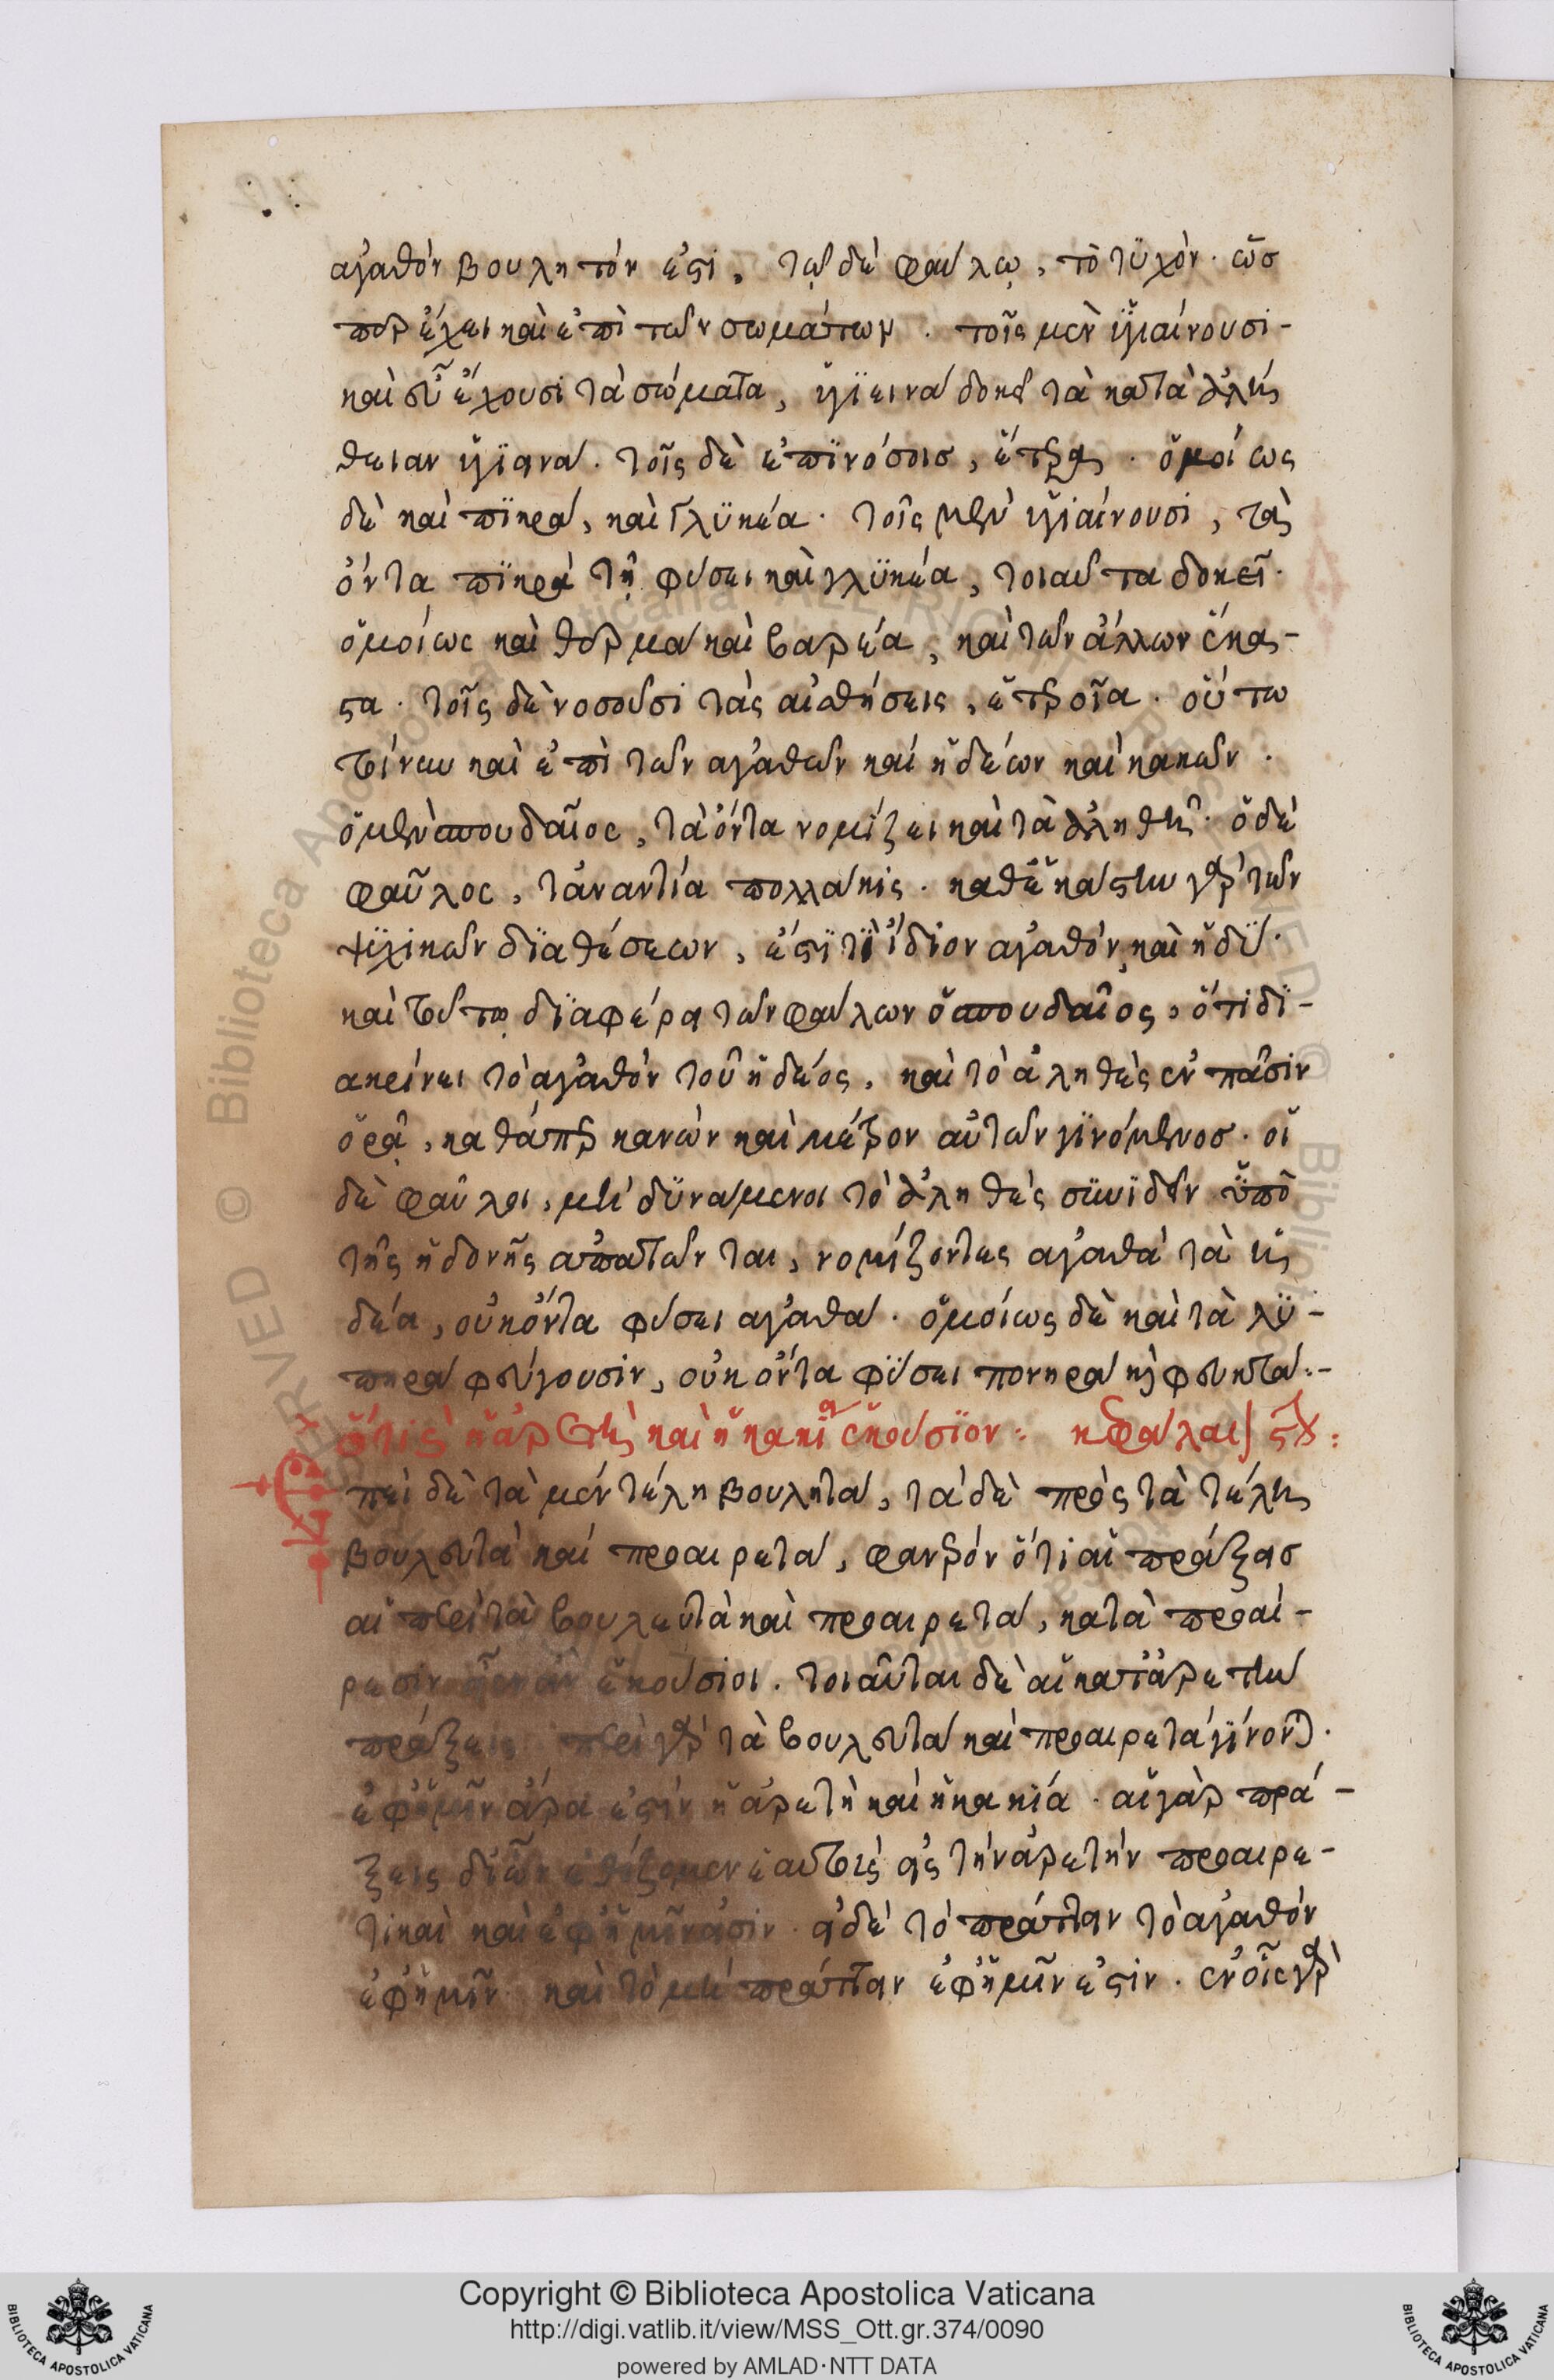 ἀγαθόν βουλητόν ἐστι, τῷ δὲ φαύλῳ, τὸ τυχόν. ὥσ
περ ἔχει καὶ ἐπὶ τῶν σωμάτων. τοῖς μὲν ὑγιαίνουσι-
καὶ εὖ ἔχουσι τὰ σώματα, ὑγιεινὰ δοκεῖ τὰ κατὰ ἀλή
θειαν ὑγιεινά. τοῖς δὲ ἐπινόσοις, ἕτερα. ὁμοίως
δὲ καὶ πικρά, καὶ γλυκέα. τοῖς μὲν ὑγιαίνουσι, τὰ
ὄντα πικρὰ τῇ φύσει καὶ γλυκέα, τοιαῦτα δοκεῖ.
ὁμοίως καὶ θερμὰ καὶ βαρέα, καὶ τῶν ἄλλων ἕκα-
στα. τοῖς δὲ νοσοῦσι τὰς αἰσθήσεις, ἑτεροῖα. οὕτω
τοίνυν καὶ ἐπὶ τῶν ἀγαθῶν καὶ ἡδέων καὶ κακῶν.
ὁ μὲν σπουδαῖος, τὰ ὄντα νομίζει καὶ τὰ ἀληθῆ. ὁ δὲ
φαῦλος, τἀναντία πολλάκις. καθ' ἑκάστην γὰρ τῶν
ψυχικῶν διαθέσεων, ἐστί τι ἴδιον ἀγαθόν, καὶ ἡδύ.
καὶ τούτῳ διαφέρει τῶν φαύλων ὁ σπουδαῖος, ὅτι δι-
ακρίνει τὸ ἀγαθόν τοῦ ἡδέος, καὶ τὸ ἀληθὲς ἐν πᾶσιν
ὁρᾷ, καθάπερ κανὼν καὶ μέτρον αὐτῶν γινόμενος. οἱ
δὲ φαῦλοι, μὴ δυνάμενοι τὸ ἀληθὲς συνιδεῖν ὑπὸ
τῆς ἡδονῆς ἀπατῶνται, νομίζοντες ἀγαθὰ τὰ ἡ
δέα, οὐκ ὄντα φύσει ἀγαθά. ὁμοίως δὲ καὶ τὰ λυ-
πηρὰ φεύγουσιν, οὐκ ὄντα φύσει πονηρὰ καὶ φευκτά:-
ὅτι ἡ ἀρετὴ καὶ ἡ κακία ἑκούσιον: κεφάλαι
πεὶ δὲ τὰ μὲν τέλη βουλητά, τὰ δὲ πρὸς τὰ τέλη
βουλευτὰ καὶ προαιρετά, φανερόν ὅτι αἱ πράξεις
αἱ περὶ τὰ βουλευτὰ καὶ προαιρετά, κατὰ προαί-
ρεσιν εἶεν ἂν ἑκούσιοι. τοιαῦται δὲ αἱ κατ' ἀρετὴν
πράξεις περὶ γὰρ τὰ βουλευτὰ καὶ προαιρετὰ γίνονται.
ἐφ' ἡμῖν ἄρα ἐστὶν ἡ ἀρετὴ καὶ ἡ κακία. αἱ γὰρ πρά-
ξεις δι' ὧν ἐθίζομεν ἑαυτοὺς εἰς τὴν ἀρετὴν προαιρε-
τικαὶ καὶ ἐφ' ἡμῖν εἰσιν. εἰ δὲ τὸ πράττειν τὸ ἀγαθόν
ἐφ' ἡμῖν καὶ τὸ μὴ πράττειν ἐφ' ἡμῖν ἐστιν. ἐν οἷς γὰρ
Copyright © Biblioteca Apostolica Vaticana
http://digi.vatlib.it/view/MSS_Ott.gr.374/0090
powered by AMLAD·NTT DATA